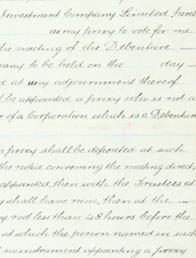 Investment Company Limited hereb
as my proxy to vote for me
the meeting of the Debenture —
any to be held on the day —
d at any adjournment thereof
be appointed a proxy who is not a
r of a Corporation which is a Debentur
proxy shall be deposited at such
the notice convening the meeting direct,
appointed, then with the Trustees at
y shall have none, then at the —
y not less than 48 hours before the
at which the person named in such
instrument appointing a proxy